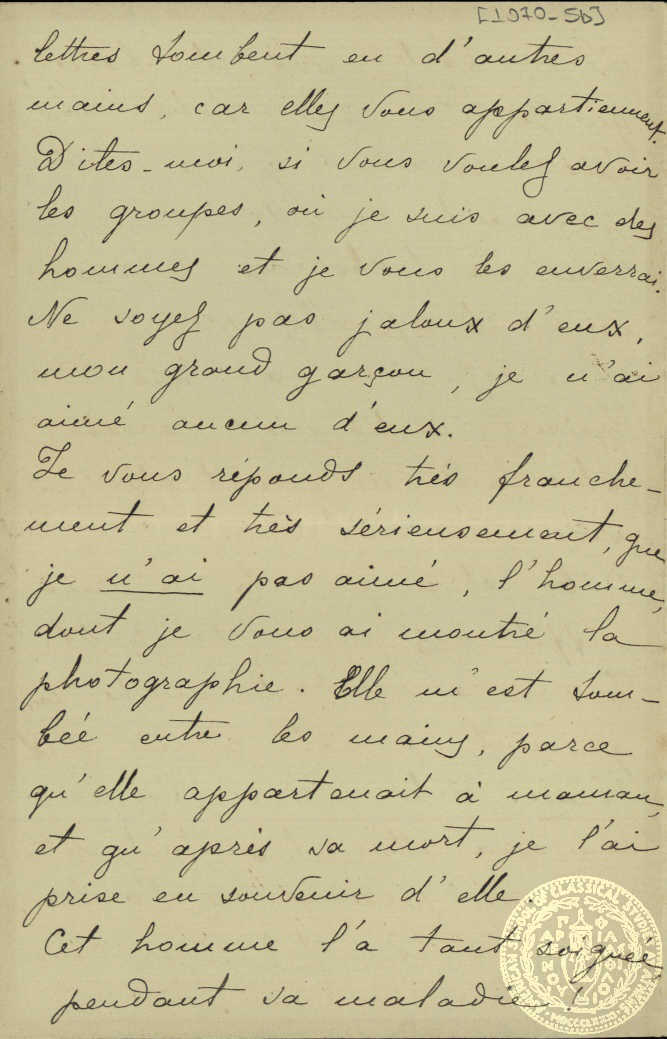 [1970-5b]
lettres tombent en d'autres
mains, car elles vous appartiennent.
Dites-moi, si vous voulez avoir
les groupes, où je suis avec des
hommes et je vous les enverrai.
Ne soyez pas jaloux d'eux,
mon grand garçon, je n'ai
aimé aucun d'eux.
Je vous réponds très franche-
ment et très sérieusement, que
je n'ai pas aimé, l'homme,
dont je vous ai montré la
photographie. Elle m'est tom-
bée entre les mains, parce
qu'elle appartenait à maman,
et qu'après sa mort, je l'ai
prise en souvenir d'elle.
Cet homme l'a tant soignée,
pendant sa maladie!
AMERICAN SCHOOL OF CLASSICAL STUDIES